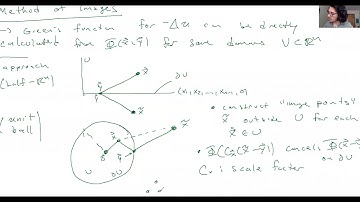 Method of Images
→ Green's function for -Δu can be directly
calculated from Φ(x̃-ỹ) for some domains U⊂ℝⁿ
approach
(half-ℝⁿ
U
x̃
ỹ
∂U
(x₁,x₂,...,xₙ₋₁,0)
x̃
unit
ball
1
x̃
x̃
0
ỹ
U
∂U
• construct "image points"
x̃ outside U for each
x̃∈U
• cancels
on ∂U
is scale factor